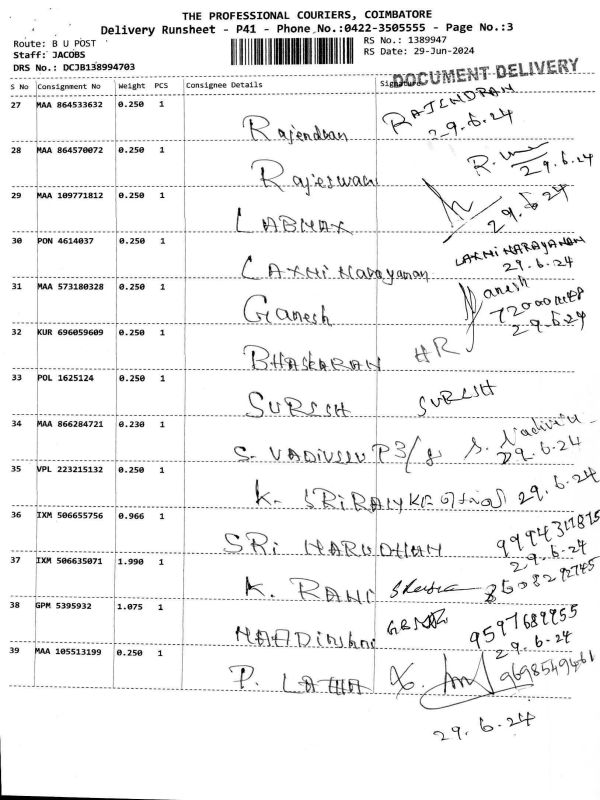 THE PROFESSIONAL COURIERS, COIMBATORE
Delivery Runsheet - P41 - Phone No.:0422-3505555 - Page No.:3
Route: B U POST
RS No.: 1389947
Staff: JACOBS
RS Date: 29-Jun-2024
DRS No.: DCJB138994703
DOCUMENT DELIVERY
S No Consignment No Weight PCS Consignee Details Signature
27 MAA 864533632 0.250 1 Rajendran RAJENDRAN
29.6.24
28 MAA 864570072 0.250 1 Rajeswari
29.6.24
29 MAA 109771812 0.250 1 LABMAX
29.6.24
30 PON 4614037 0.250 1 Laxmi Narayanan LAXMI NARAYANAN
29.6.24
31 MAA 573180328 0.250 1 Ganesh Ganesh
29.6.24
32 KUR 696059609 0.250 1 BHASKARAN HR
33 POL 1625124 0.250 1 SURESH SURESH
34 MAA 866284721 0.230 1 S. VADIVELU P3/8 S. Vadivelu
29.6.24
35 VPL 223215132 0.250 1 K. 29.6.24
36 IXM 506655756 0.966 1 SRI
29.6.24
37 IXM 506635071 1.990 1 K. RANI
38 GPM 5395932 1.075 1 9597689955
29.6.24
39 MAA 105513199 0.250 1 P. LATHA 9698549461
29.6.24